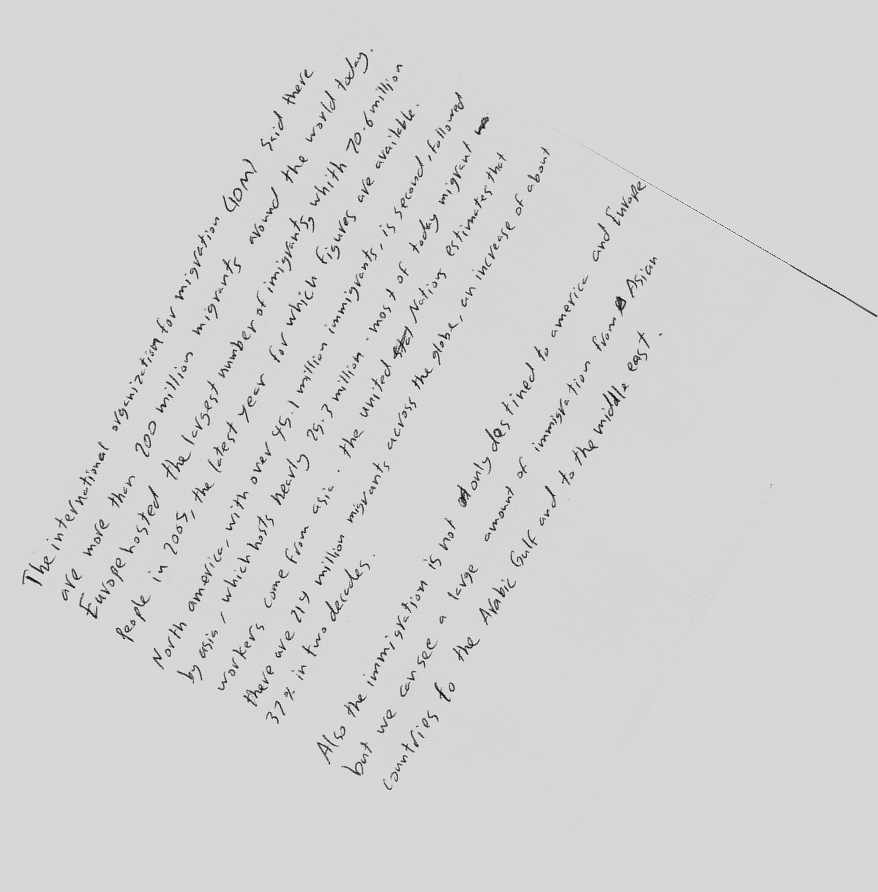 The international organization for migration (IOM) said there
are more than 200 million migrants around the world today.
Europe hosted the largest number of imigrants, whith 70.6 million
people in 2005, the latest year for which figures are available.
North america, with over 45.1 million immigrants, is second, followed
by asia, which hosts nearly 25.3 million - most of today migrant
workers come from asia. the united Nations estimates that
there are 214 million migrants across the globe, an increase of about
37% in two decades.
Also the immigration is not only destined to america and Europe
but we can see a large amount of immigration from Asian
countries to the Arabic Gulf and to the middle east.